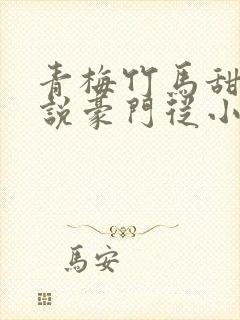 青梅竹馬甜
說豪門從小
馬安